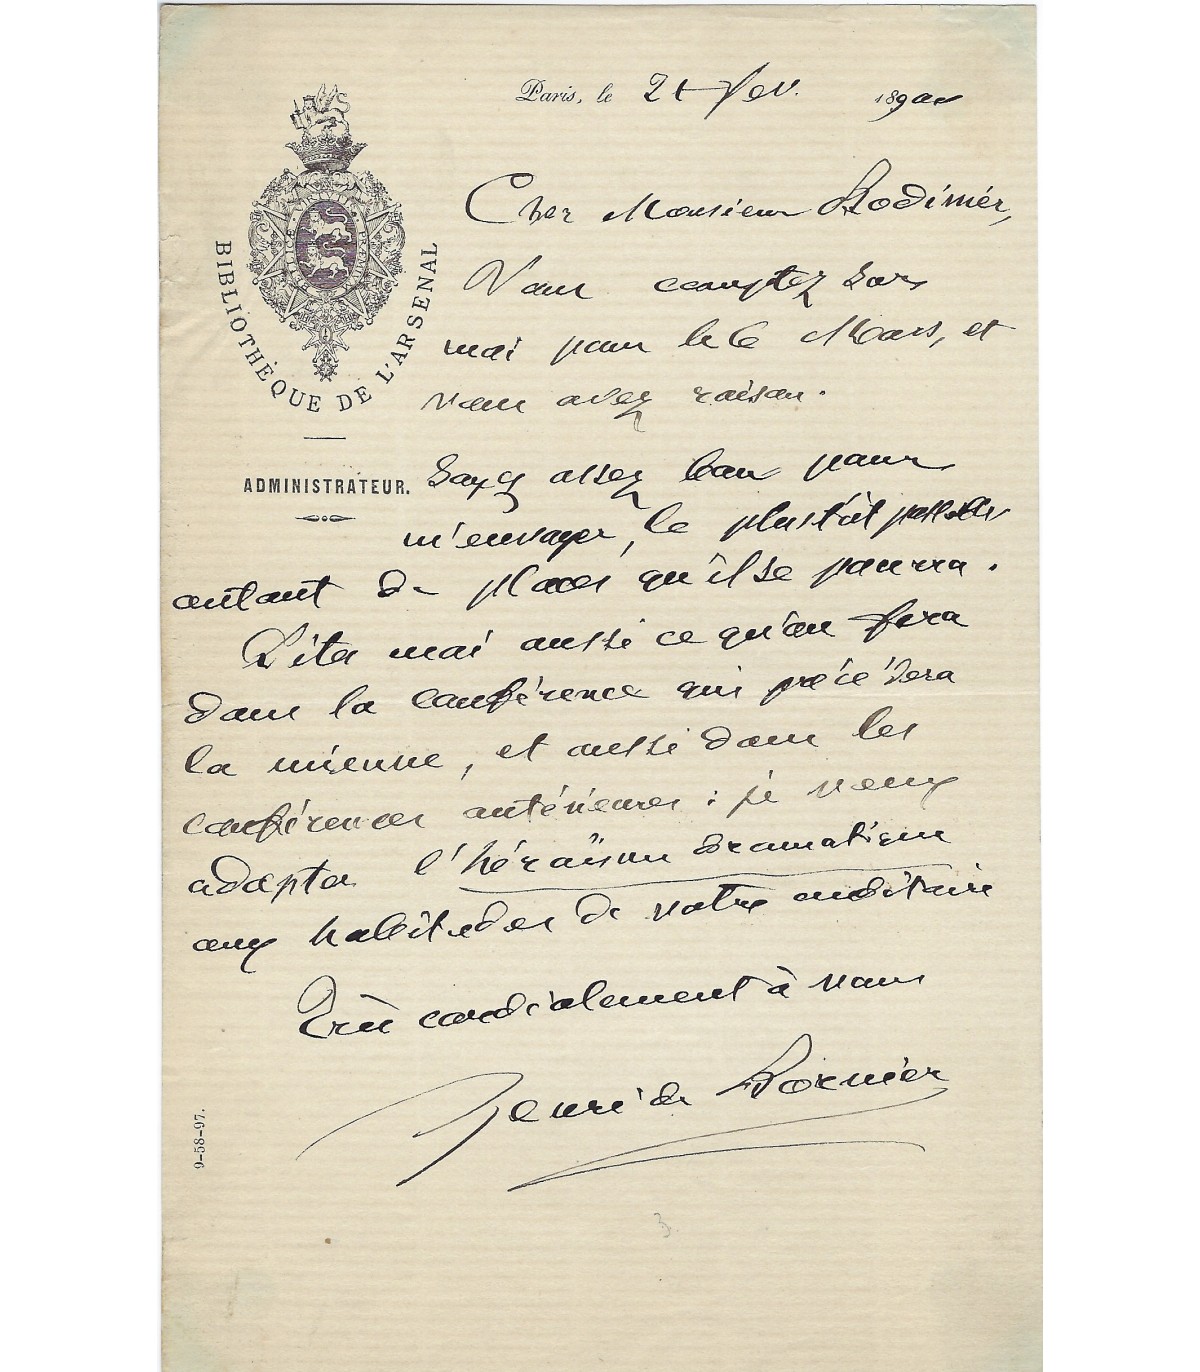 Paris, le 2 fev. 189
VIRTUTIS BELLICÆ PRÆMIUM
BIBLIOTHÈQUE DE L'ARSENAL
ADMINISTRATEUR.
Cher Monsieur Bodinier,
Vous comptez sur
moi pour le 6 Mars, et
vous avez raison.
Soyez assez bon pour
m'envoyer, le plustôt possible
autant de places qu'il se pourra.
Dites moi aussi ce qu'on fera
dans la conférence qui précèdera
la mienne, et aussi dans les
conférences antérieures : je veux
adapter l'héroïsme dramatique
aux habitudes de votre auditoire
Très cordialement à vous
Henri de Bornier
9-58-97.
3.